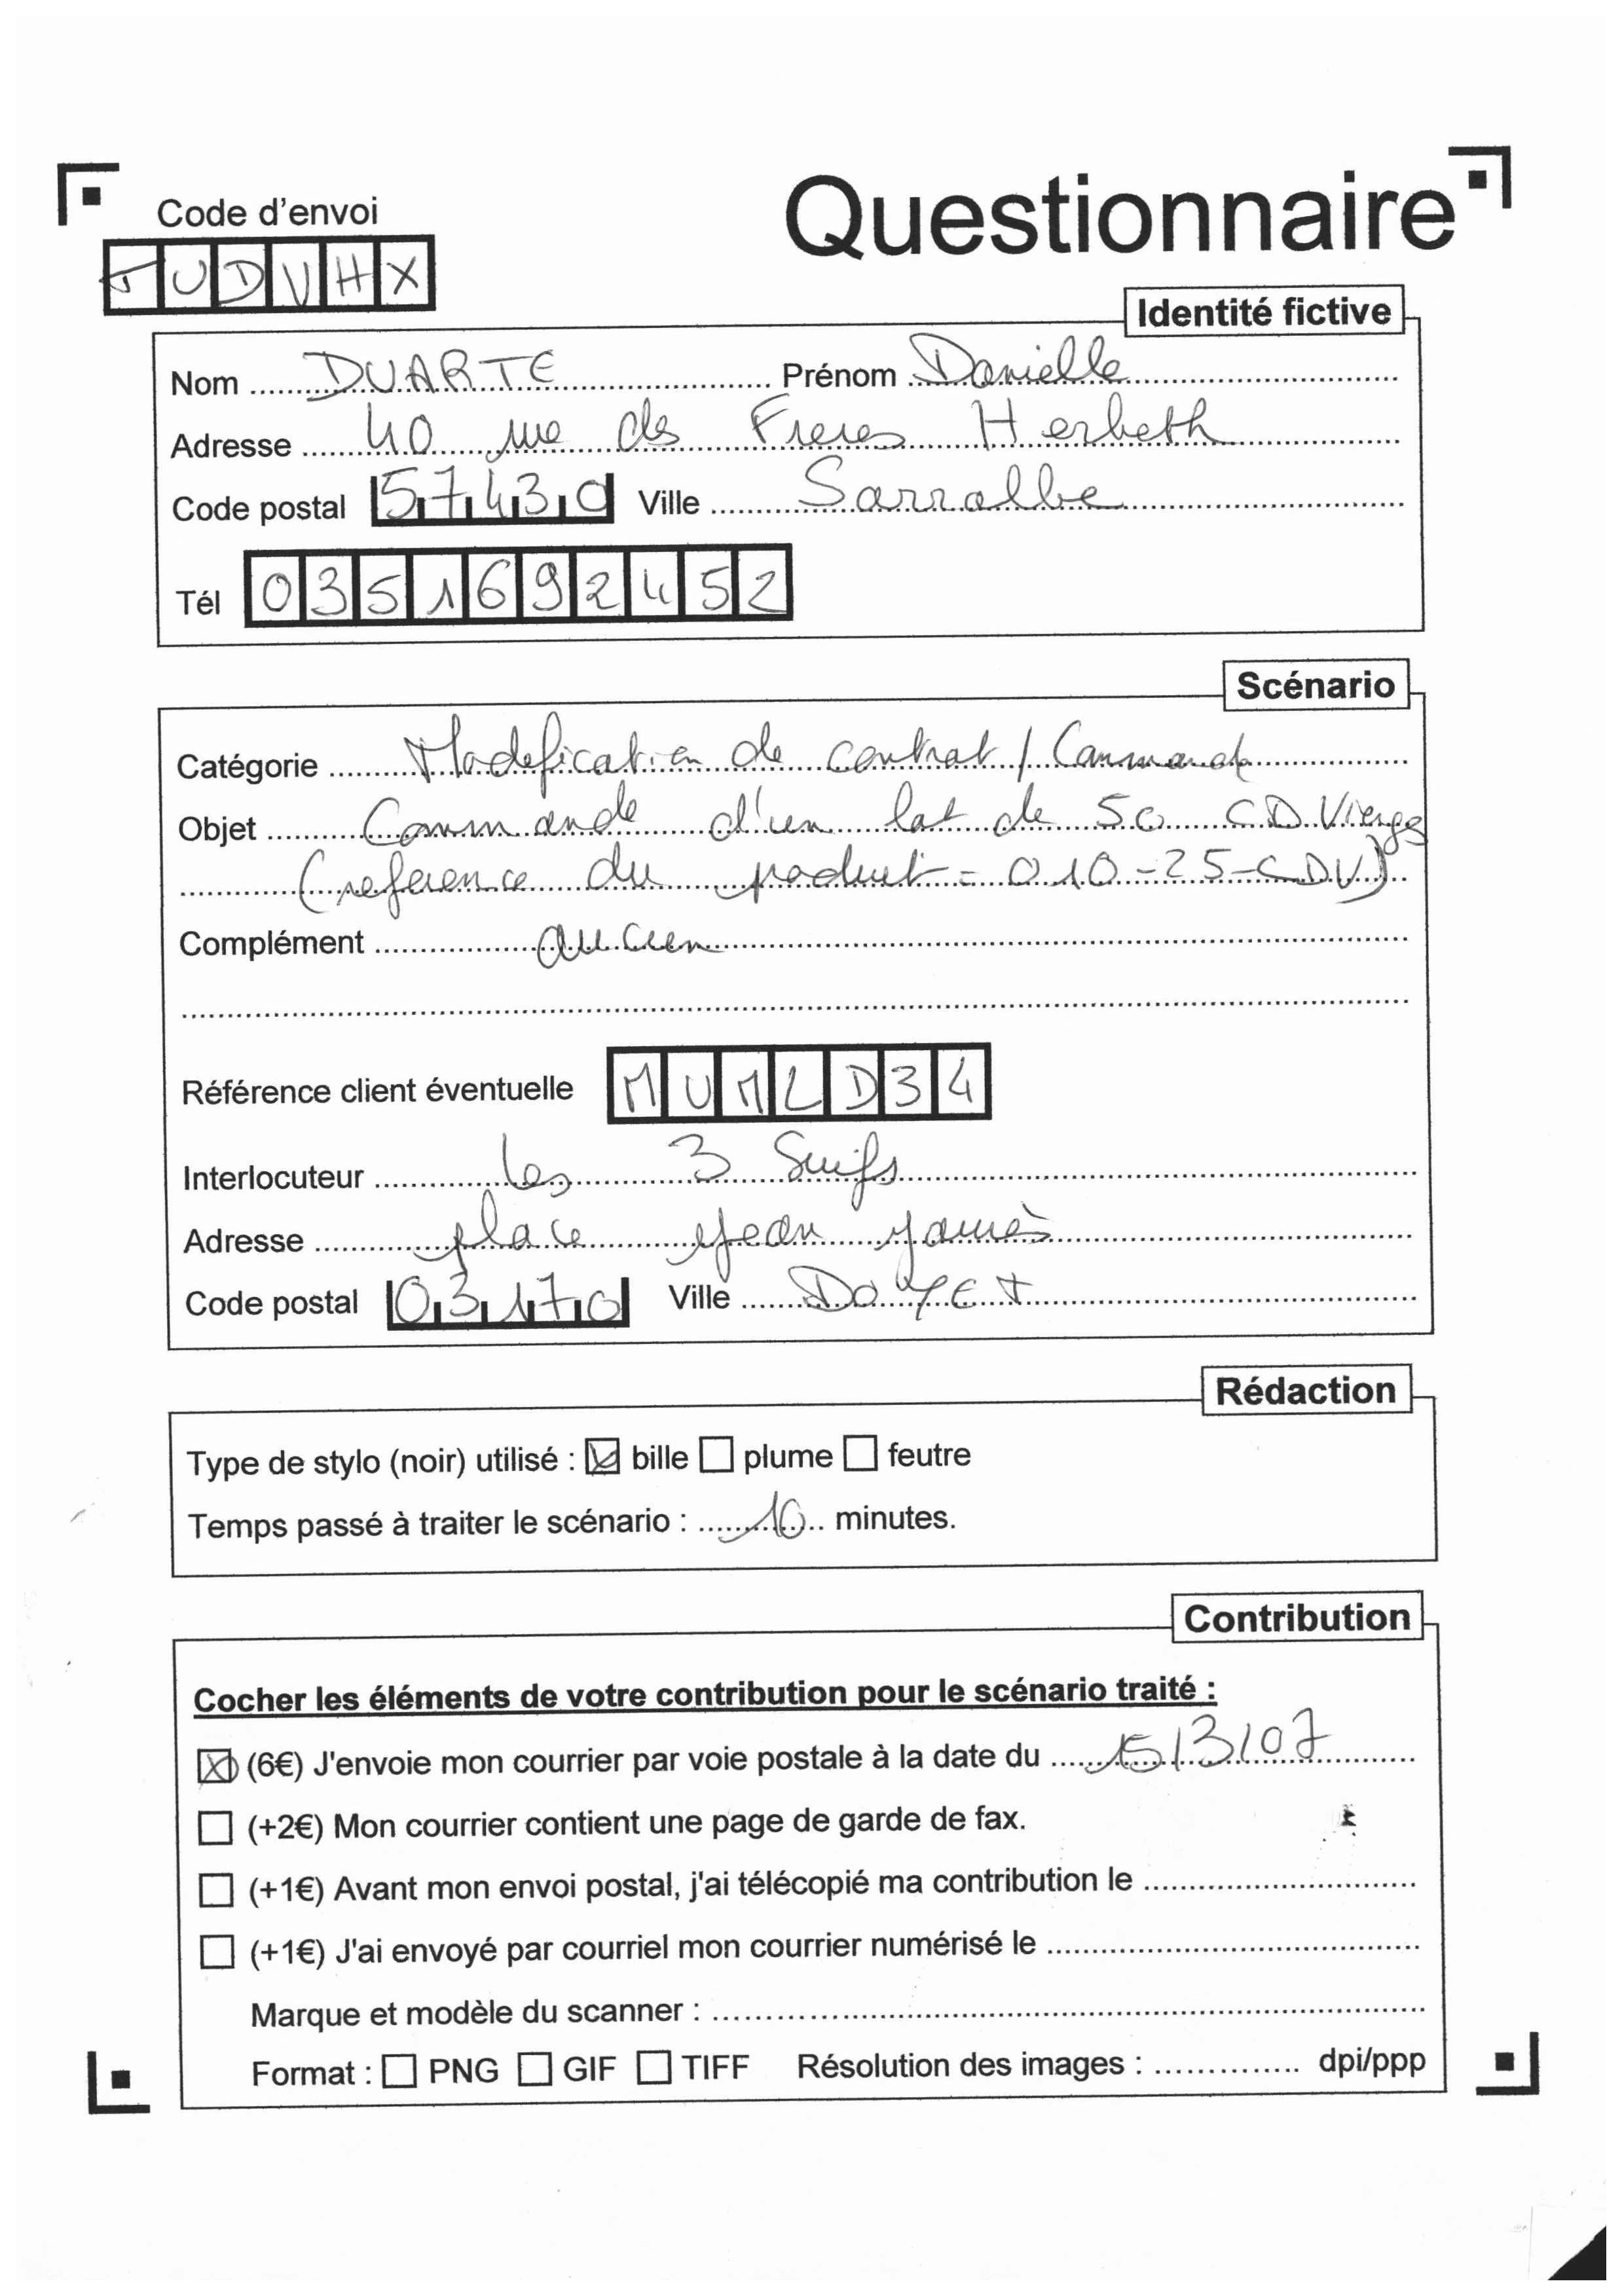 Questionnaire
Code d'envoi
JUDVHX
Identité fictive
Nom DUARTE Prénom Danielle
Adresse 40 rue des Freres Herbeth
Code postal 57430 Ville Sarralbe
Tél 0351692452
Scénario
Catégorie Modification de contrat / Commande
Objet Commande d'un lot de 50 CD Vierges
(reference du produit = 010-25-CDV)
Complément aucun
Référence client éventuelle MUMLD34
Interlocuteur les 3 Suifs
Adresse place Jean Jaurès
Code postal 03170 Ville DOYET
Rédaction
Type de stylo (noir) utilisé : ☒ bille ☐ plume ☐ feutre
Temps passé à traiter le scénario : 10 minutes.
Contribution
Cocher les éléments de votre contribution pour le scénario traité :
☒ (6€) J'envoie mon courrier par voie postale à la date du 15/3/07
☐ (+2€) Mon courrier contient une page de garde de fax.
☐ (+1€) Avant mon envoi postal, j'ai télécopié ma contribution le
☐ (+1€) J'ai envoyé par courriel mon courrier numérisé le
Marque et modèle du scanner :
Format : ☐ PNG ☐ GIF ☐ TIFF Résolution des images : dpi/ppp